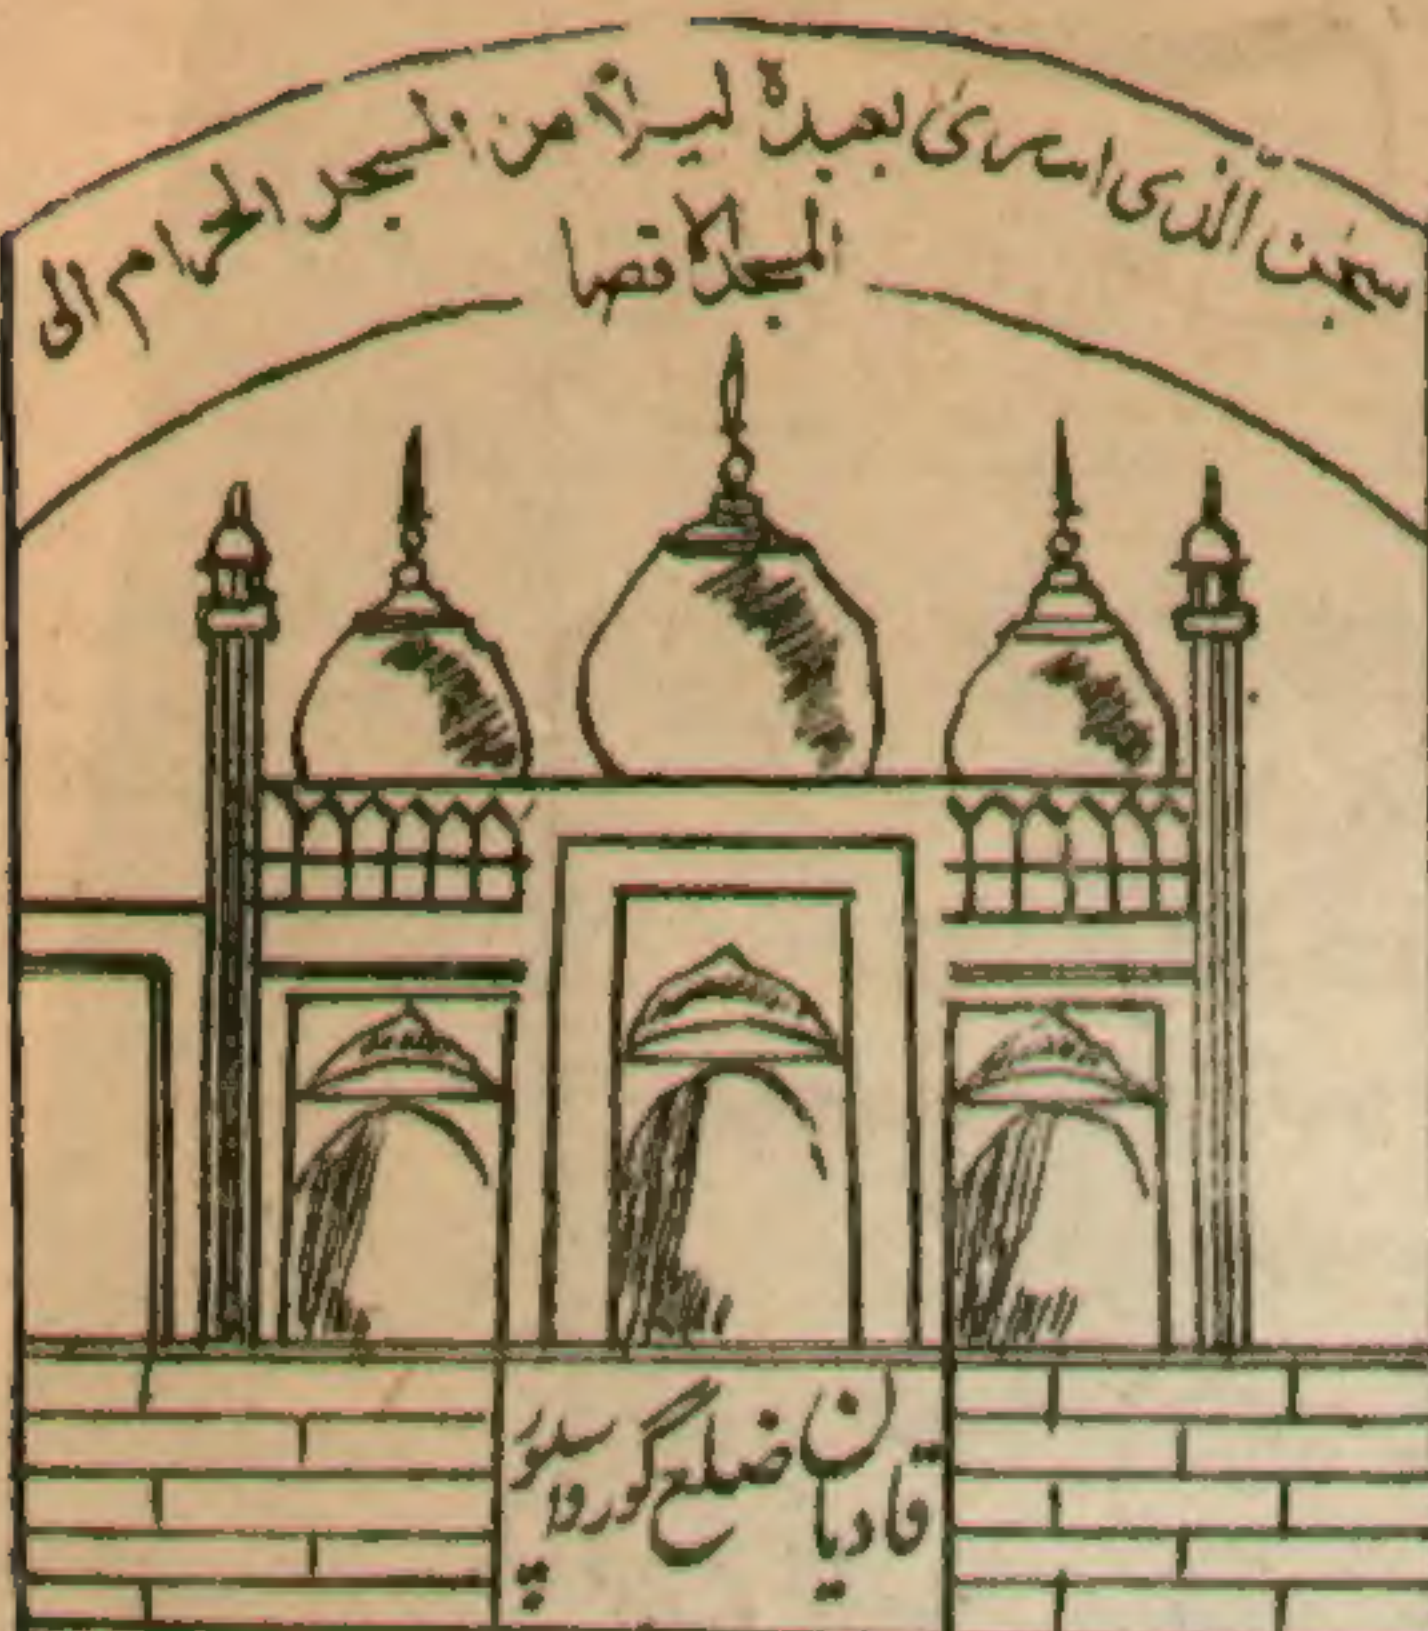 سبحٰن الّذی اسریٰ بعبدہٖ لیلاً من المسجد الحرام الی
المسجد الاقصا
قادیان ضلع گورداسپور